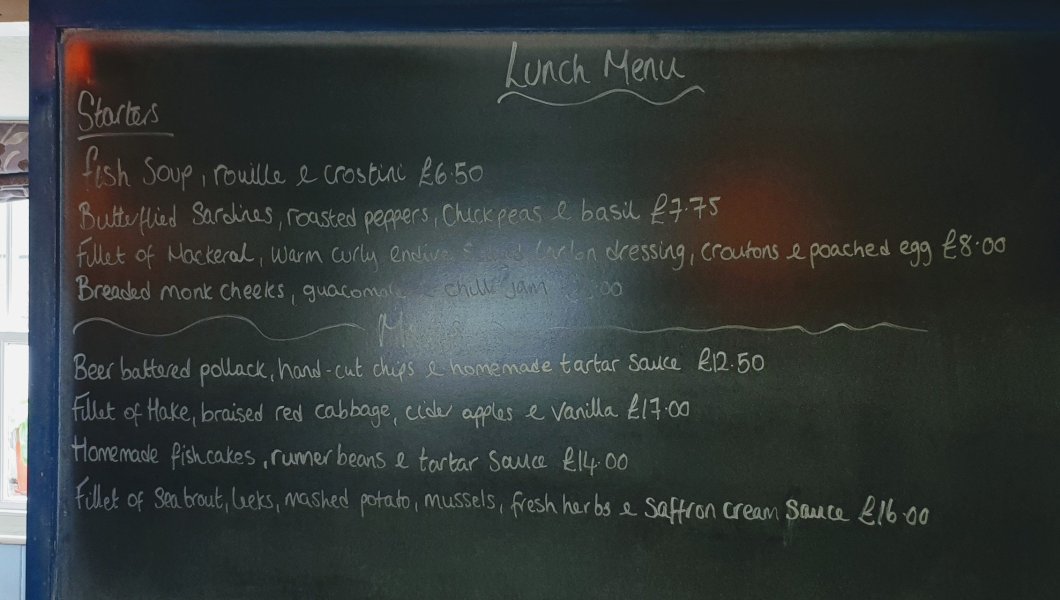 Lunch Menu
Starters
Fish Soup, rouille & crostini £6.50
Butterflied Sardines, roasted peppers, Chickpeas & basil £7.75
Fillet of Mackeral, warm curly endive dressing, croutons & poached egg £8.00
Breaded monk cheeks, guacamole & chilli jam
Mains
Beer battered pollack, hand-cut chips & homemade tartar sauce £12.50
Fillet of Hake, braised red cabbage, cider apples & vanilla £17.00
Homemade fishcakes, runner beans & tartar sauce £14.00
Fillet of Sea trout, leeks, mashed potato, mussels, fresh herbs & saffron cream sauce £16.00